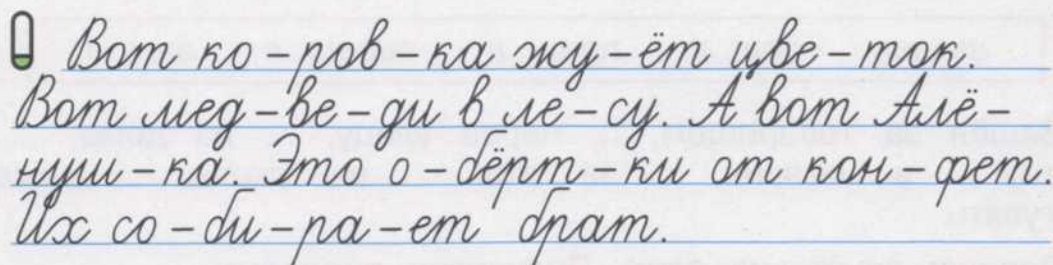 Вот ко-ров-ка жу-ёт цве-ток.
Вот мед-ве-ди в ле-су. А вот Алё-
нуш-ка. Это о-бёрт-ки от кон-фет.
Их со-би-ра-ет брат.